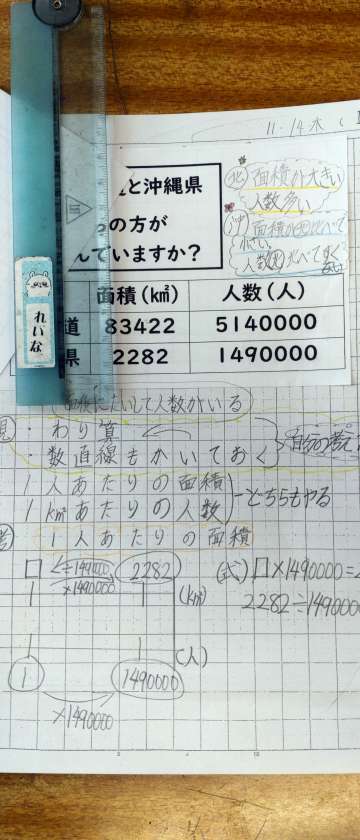 11.14 木
と沖縄県
の方が
んでいますか？
北 面積が大きい
人数多い
沖 面積は北に比べて
小さい。
人数
面積(km²) 人数(人)
道 83422 5140000
県 2282 1490000
れいな
面積にたいして人数がいる
見 ・わり算
・数直線もかいておく
自分の考え
1人あたりの面積
1km²あたりの人数
どちらもやる
1人あたりの面積
□ ÷1490000 2282
×1490000 (km²)
(式) □×1490000=
2282÷1490000
(人)
1 1490000
×1490000